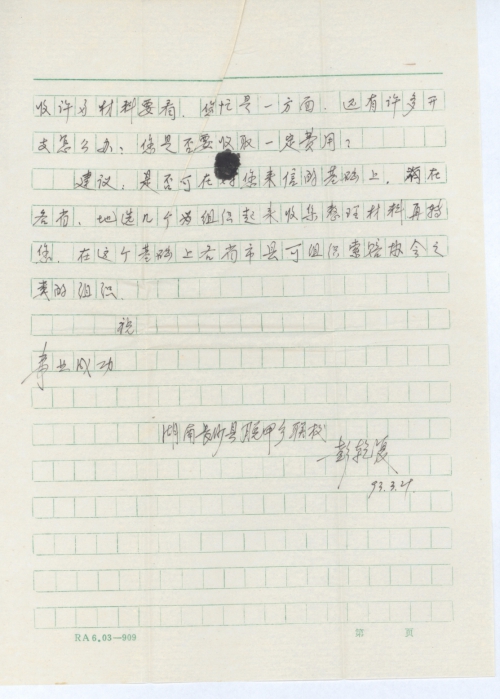 收许多材料要看，您忙是一方面，还有许多开
支怎么办：您是否要收取一定费用？
建议，是否可在给您来信的基础上，在
各省、地选几个为组织起来收集整理材料再转
您，在这个基础上各省市县可组织索赔协会之
类的组织
祝
事业成功
湖南长沙县 甲乡联校
彭乾
93.3.
RA6.03—909
第 页